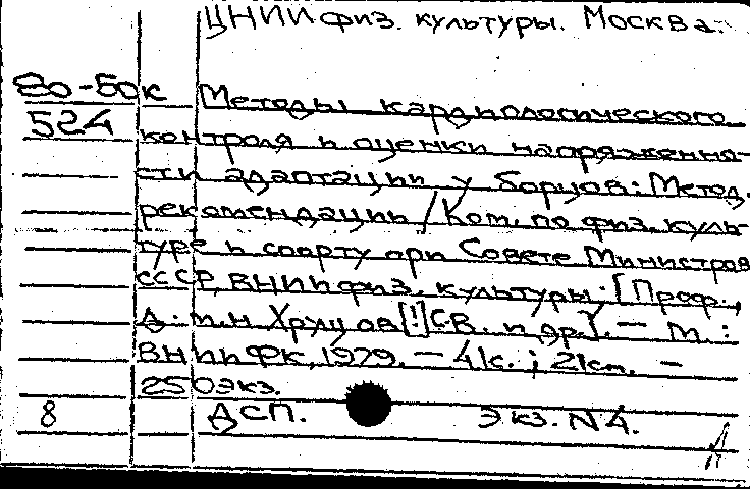 ЦНИИ физ. культуры. Москва.
80-50к Методы кардиологического
524 контроля и оценки напряженно-
сти адаптации у борцов: Метод.
рекомендации / Ком. по физ. куль-
туре и спорту при Совете Министров
СССР, ВНИИ физ. культуры; [Проф.,
д. м. н. Хрущов [!] С.В. и др.]. — М.:
ВНИИФК, 1979. — 41с.; 21см. —
250экз.
8 ДСП. Экз. N4.